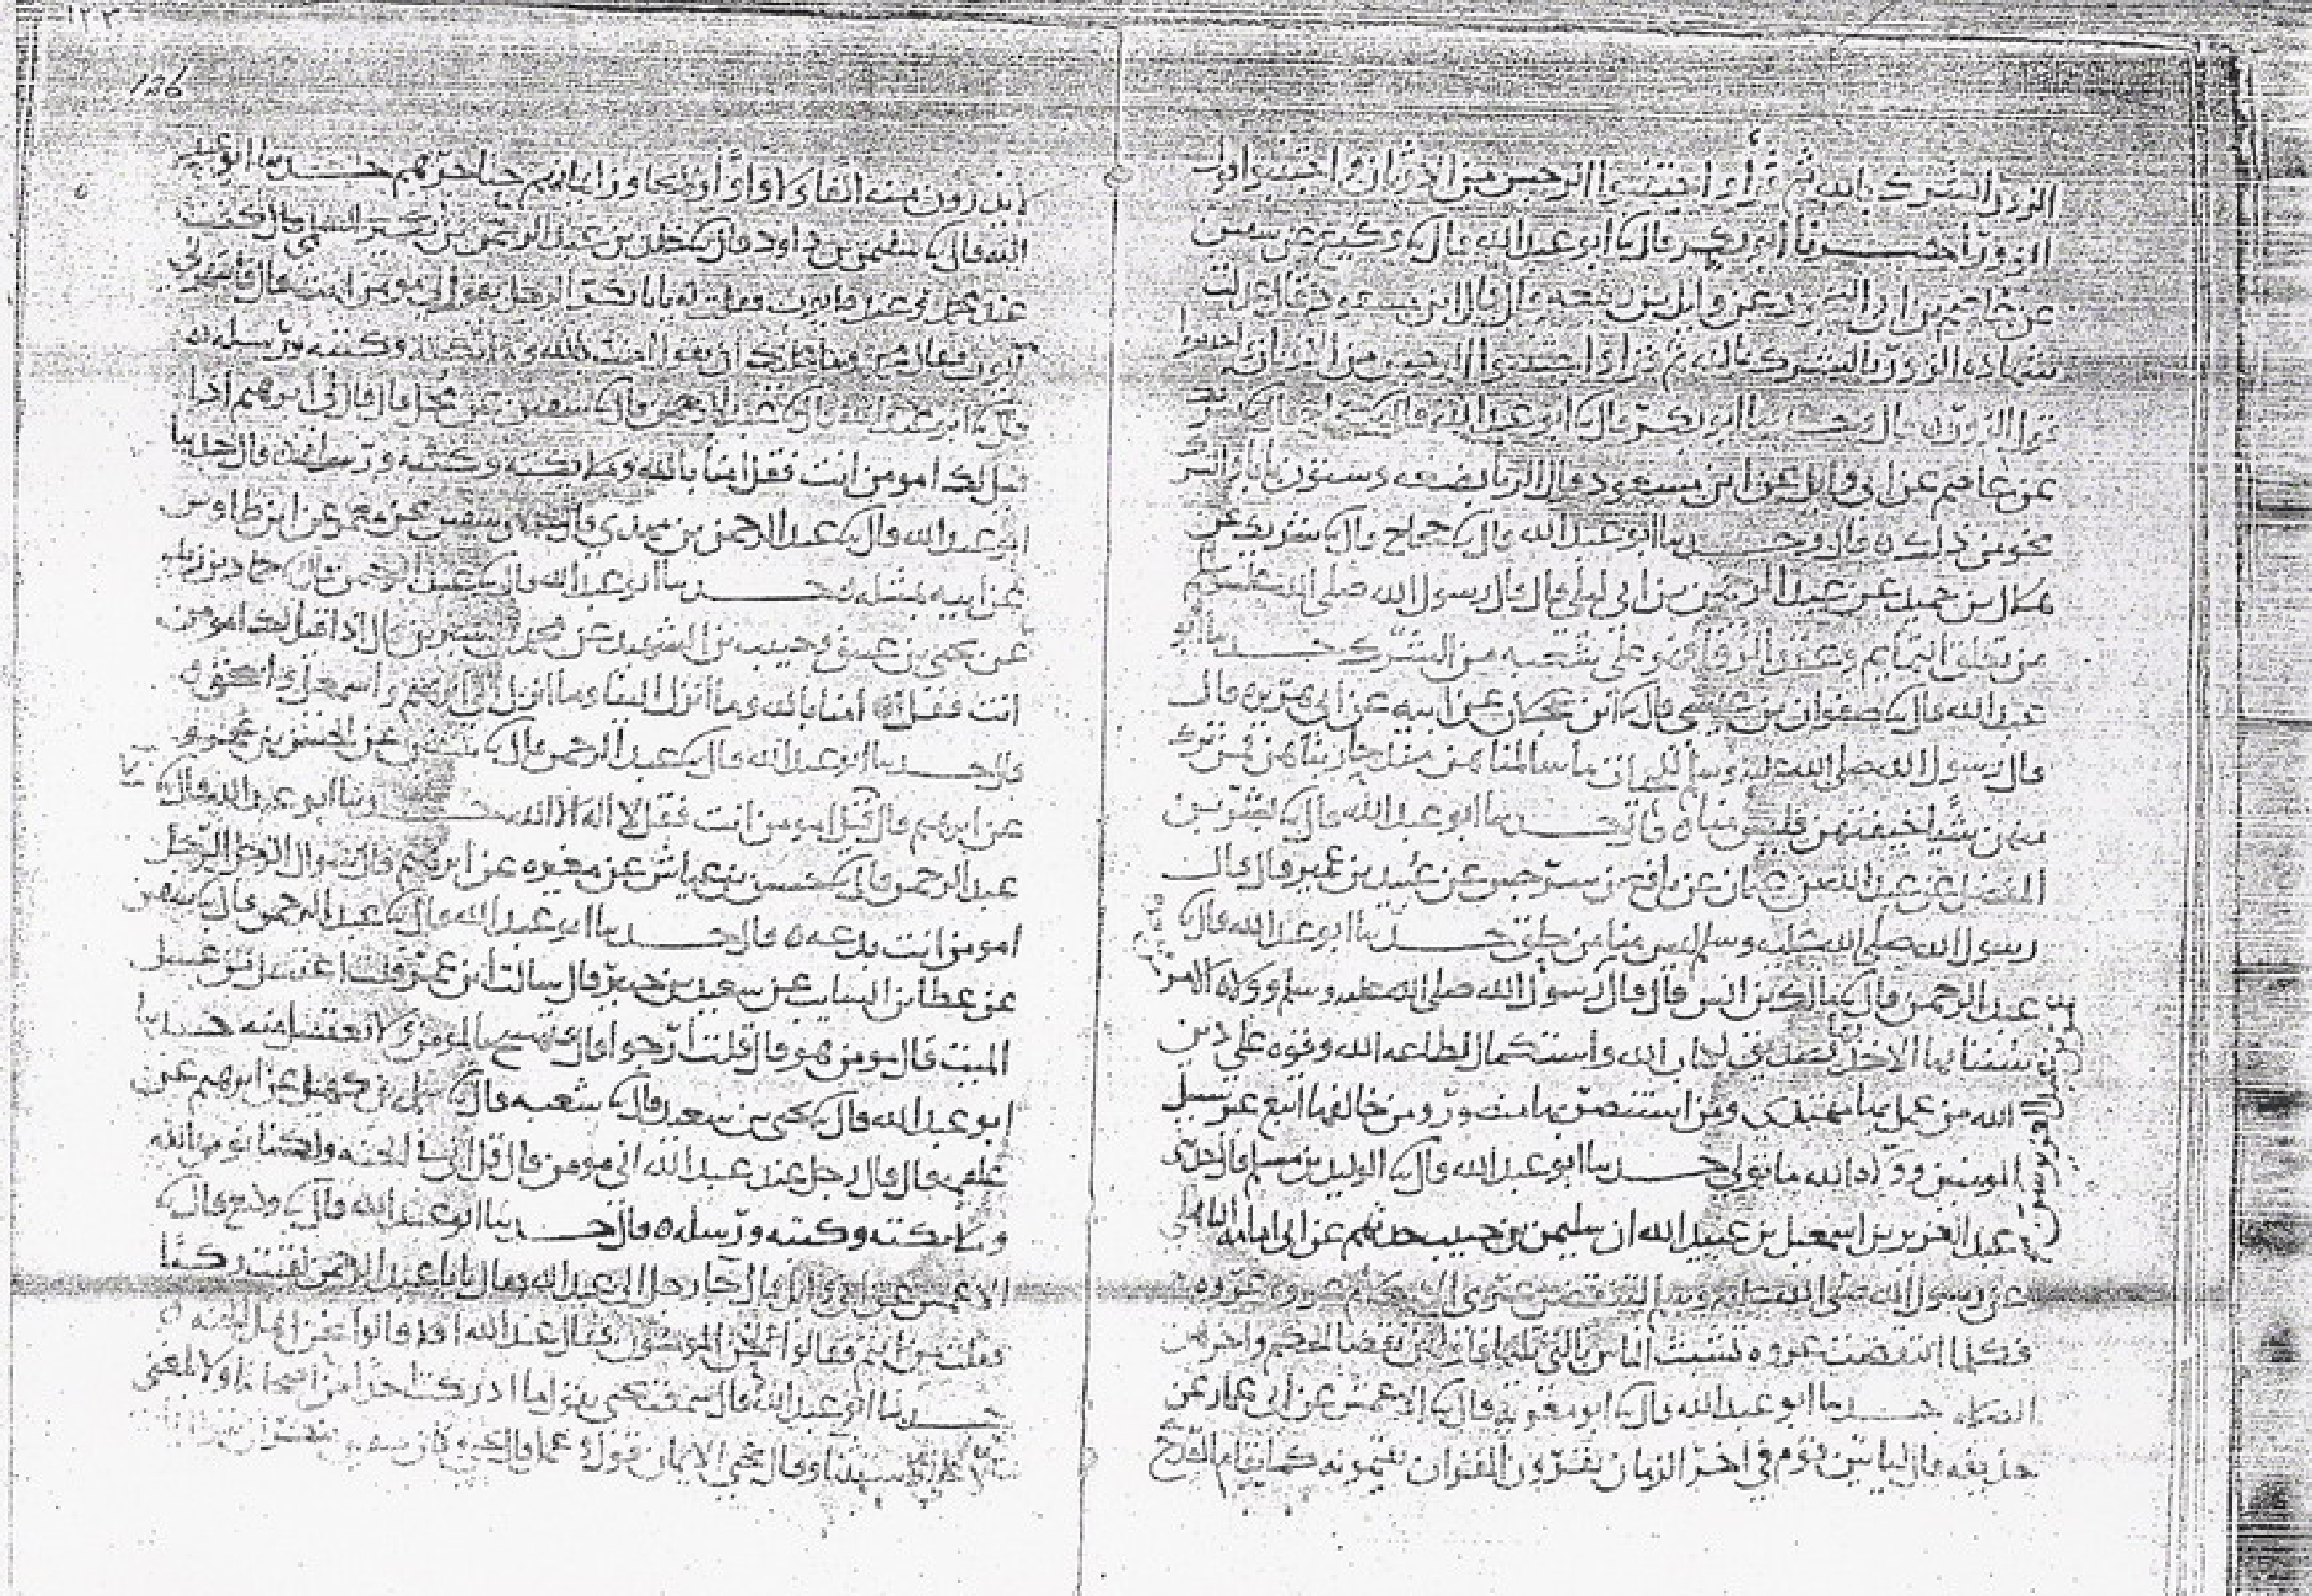 الزور الشرك بالله ثم قرأ واجتنبوا الرجس من الاوثان واجتنبوا قول
الزور اخبرنا ابو بكر قال ابو عبد الله قال وكيع عن سفين
عن عاصم بن ابي النجود عن وايل بن ربيعه قال قال ابن مسعود تعدل
شهاده الزور بالشرك بالله ثم قرأ واجتنبوا الرجس من الاوثان واجتنبوا
قول الزور قال وحدثنا ابو بكر قال ابو عبد الله قال
عن عاصم عن ابي وايل عن ابن مسعود قال الربا بضعه وستون بابا والشرك
نحو من ذلك ه قال وحدثنا ابو عبد الله قال حجاج قال شريك عن
هلال بن حميد عن عبد الرحمن بن ابي ليلى قال قال رسول الله صلى الله عليه وسلم
من تعلق التمايم وعقد الرقا فهو على شعبه من الشرك حدثنا ابو
عبد الله قال صفوان بن عيسى قال ابن عجلان عن ابيه عن ابي هريره قال
قال رسول الله صلى الله عليه وسلم ما سالمناهن منذ حاربناهن فمن ترك
منهن شيا خيفتهن فليس منا ه قال حدثنا ابو عبد الله قال بشر بن
المفضل عن عبد الله بن عثمان عن نافع بن سرجس عن عبيد بن عمير قال قال
رسول الله صلى الله عليه وسلم ليس منا من حلق حدثنا ابو عبد الله قال
عبد الرحمن قال مالك بن انس قال قال رسول الله صلى الله عليه وسلم وولاه الامر
سننا بها الاخذ تصديق لكتاب الله واستكمال لطاعه الله وقوه على دين
الله من عمل بها مهتدى ومن استنصر بها منصور ومن خالفها اتبع غير سبيل
المومنين وولاه الله ما تولى حدثنا ابو عبد الله قال الوليد بن مسلم قال حدثني
عبد العزيز بن اسمعيل بن عبيد الله ان سليمن بن حبيب حدثهم عن ابي امامه الباهلي
عن رسول الله صلى الله عليه وسلم لتنتقض عرى الاسلام عروه عروه
فكلما انتقضت عروه تشبث الناس بالتي تليها فاولهن نقضا الحكم واخرهن
الصلاه حدثنا ابو عبد الله قال ابو معويه قال الاعمش عن ابي عمار عن
حذيفه قال لياتين قوم في اخر الزمان يقرون القران يقيمونه كما يقام القدح
١٢٣
126
لا يذرون منه الفا ولا واوا ولا يجاوز ايمانهم حناجرهم حدثنا ابو عبد
الله قال سليمن بن داود قال عبد الرحمن
الرجل يقول لي مومن انت قال
ان يقول امنت بالله وملايكته وكتبه ورسله ه
قال ابو عبد الله قال عبد الرحمن قال سفين عن محل قال قال لي ابرهيم اذا
قيل لك امومن انت فقل امنا بالله وملايكته وكتبه ورسله ه قال حدثنا
ابو عبد الله قال عبد الرحمن بن مهدي قال سفين عن معمر عن ابن طاوس
عن ابيه بمثله ه حدثنا ابو عبد الله قال عبد الرحمن قال حماد بن زيد
عن يحيى بن عتيق وحبيب بن الشهيد عن محمد بن سيرين قال اذا قيل لك امومن
انت فقل امنا بالله وما انزل الينا وما انزل الى ابرهيم واسمعيل واسحق ه
قال حدثنا ابو عبد الله قال عبد الرحمن قال سفين عن الحسن بن عمرو
عن ابرهيم قال قيل امومن انت فقل لا اله الا الله حدثنا ابو عبد الله قال
عبد الرحمن قال حسن بن عياش عن مغيره عن ابرهيم قال سوال الرجل الرجل
امومن انت بدعه ه قال حدثنا ابو عبد الله قال عبد الرحمن قال سفين
عن عطا بن السايب عن سعيد بن جبير قال سالت ابن عمر قلت اغتسل من غسل
الميت قال مومن هو قال قلت ارجو قال فتمسح بالمومن ولا تغتسل منه حدثنا
ابو عبد الله قال يحيى بن سعيد قال شعبه قال سلمه بن كهيل عن ابرهيم عن
علقمه قال قال رجل عند عبد الله اني مومن قال قل اني في الجنه ولكنا نومن بالله
وملايكته وكتبه ورسله ه قال حدثنا ابو عبد الله قال وكيع قال
الاعمش عن ابي وايل قال جا رجل الى عبد الله فقال يا ابا عبد الرحمن لقيت ركبا
فقلت من انتم فقالوا نحن المومنون فقال عبد الله افلا قالوا نحن اهل الجنه ه
حدثنا ابو عبد الله قال سمعت يحيى يقول ما ادركت احدا من اصحابنا ولا بلغني
الا على الاستثنا وقال يحيى الايمان قول وعمل قال يحيى وكان سفين